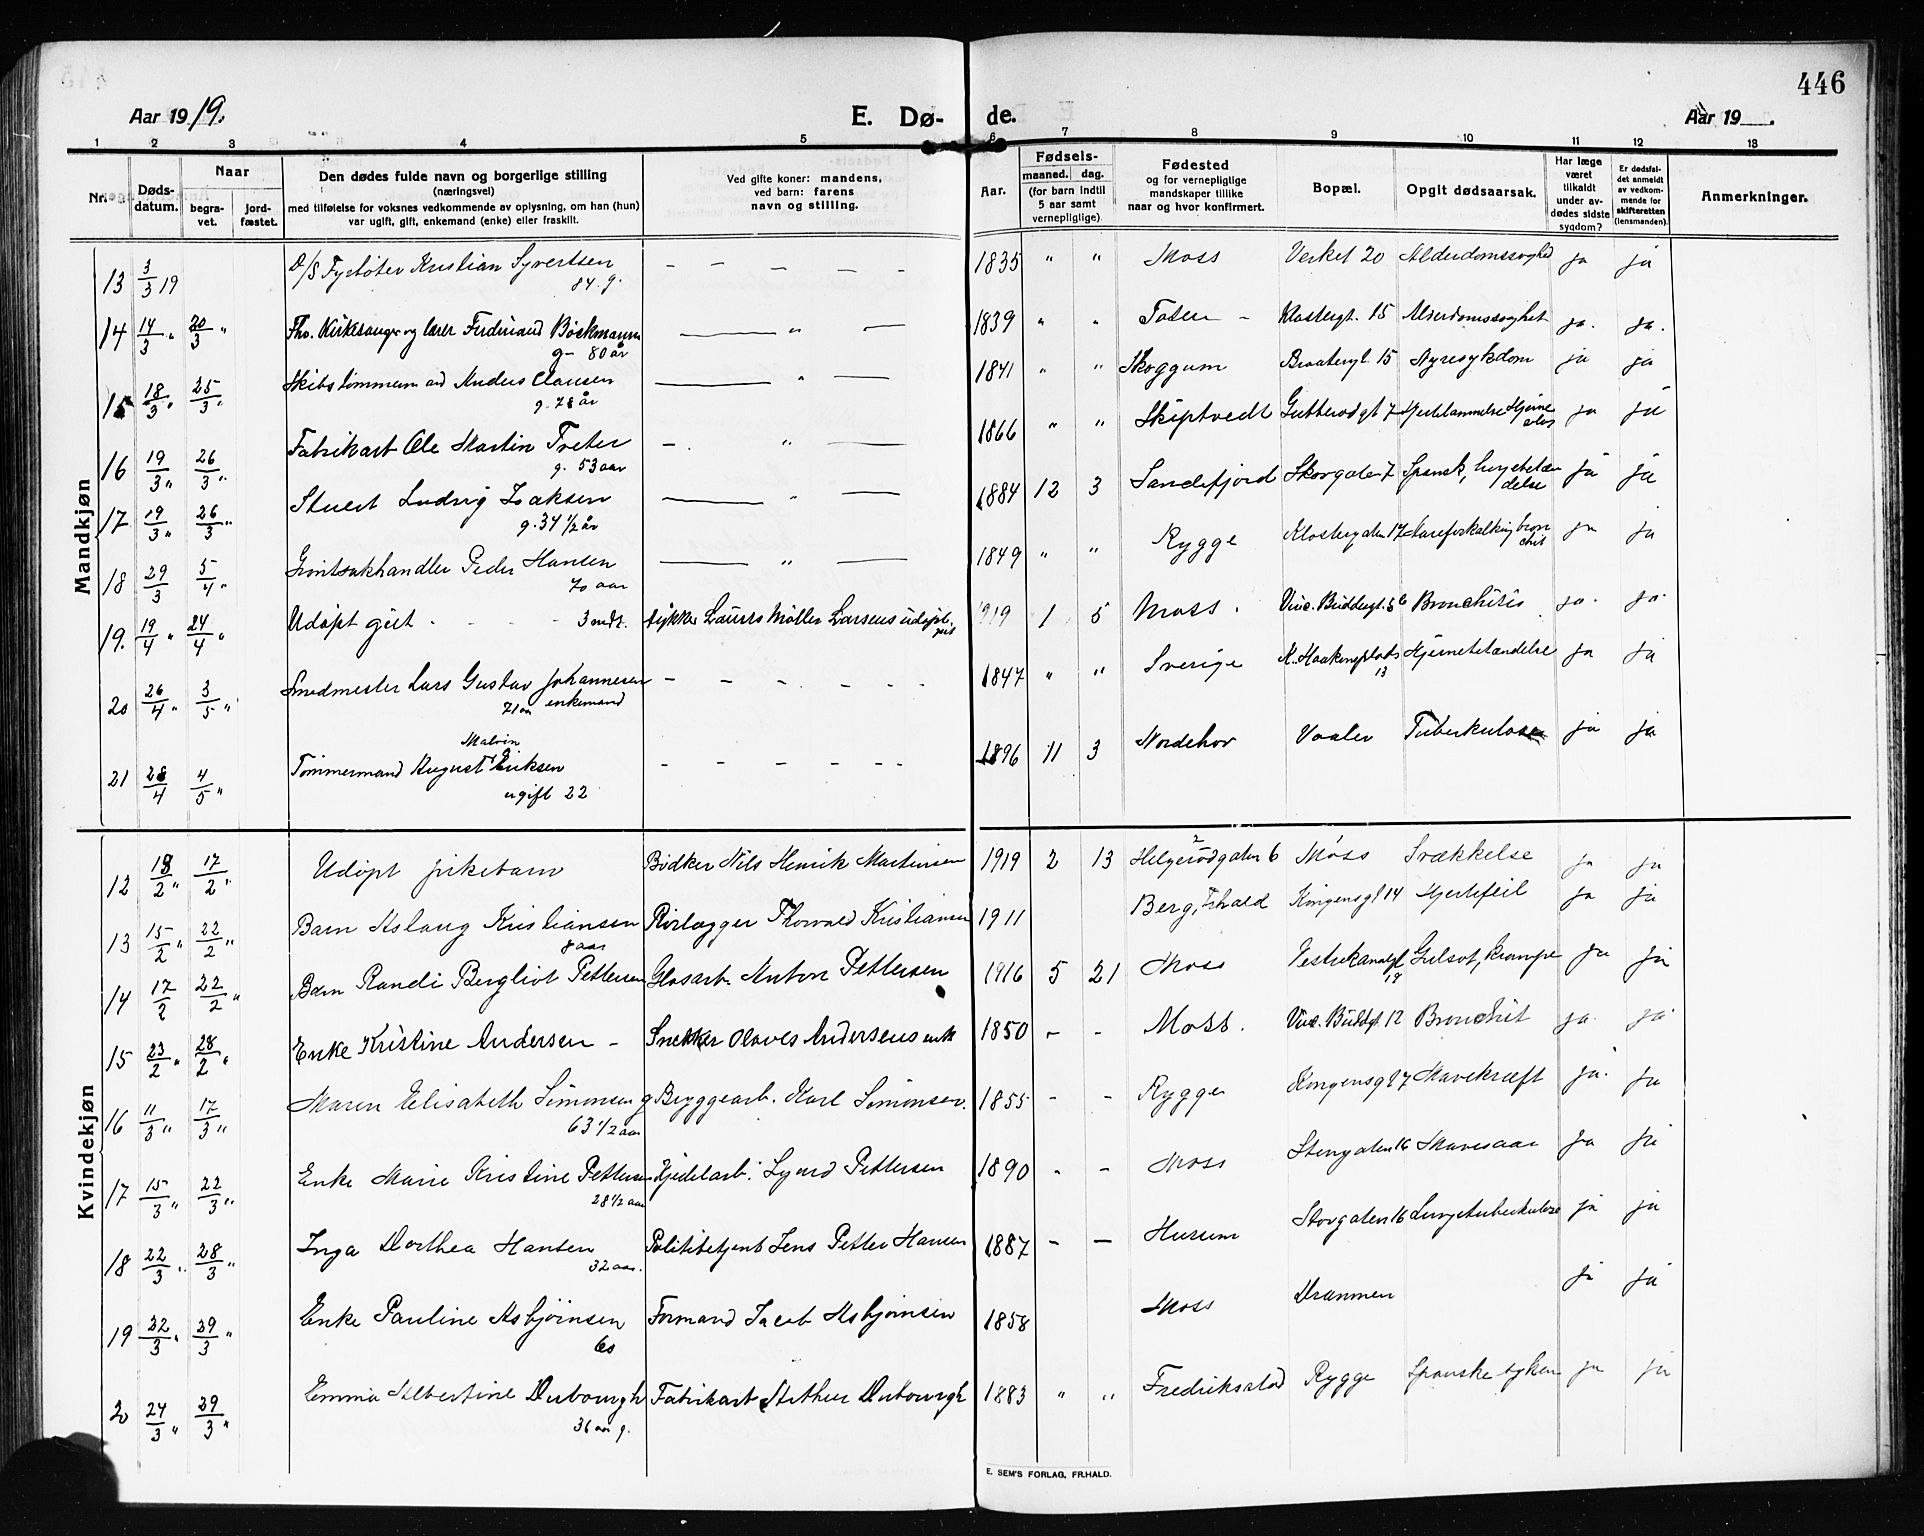 446
Aar 1919.
E. Dø- de.
Aar 19 .
1 2 3 4 5 6 7 8 9 10 11 12 13
Nr.
Døds-datum.
Naar
begra-vet.
jord-fæstet.
Den dødes fulde navn og borgerlige stilling
(næringsvei)
med tilføielse for voksnes vedkommende av oplysning, om han (hun)
var ugift, gift, enkemand (enke) eller fraskilt.
Ved gifte koner: mandens,
ved barn: farens
navn og stilling.
Aar.
Fødsels-
maaned. dag.
(for barn indtil
5 aar samt
vernepligtige)
Fødested
og for vernepligtige
mandskaper tillike
naar og hvor konfirmert.
Bopæl.
Opgit dødsaarsak.
Har læge
været
tilkaldt
under av-
dødes sidste
sygdom?
Er dødsfal-
det anmeldt
av vedkom-
mende for
skifteretten
(lensmanden).
Anmerkninger.
Mandkjøn
13 3/3 19 D/S Fyrbøter Kristian Syvertsen 84. g. — — — — — 1835 " " Moss Verket 20 Alderdomssvaghed ja ja
14 14/3 " 20/3 " Fho. Kirkesanger og lærer Ferdinand Böckmann g— 80 år — " — 1839 " " Toten — Klostergt. 15 Alderdomssvaghet ja. ja.
15 18/3 " 25/3 " Skibstømmermand Anders Clausen g. 78 år — " — 1841 " " Skoggum Braatengt. 15 Nyresykdom ja ja
16 19/3 " 26/3 " Fabrikarb Ole Martin Tveter g. 53 aar — " — 1866 " " Skiptvedt Gutterødgt 7 Hjertelammelse Hjerne ja ja
17 19/3 " 26/3 " Stuert Ludvig Isaksen g. 34 1/2 år — " — 1884 12 3 Sandefjord Skovgaten 7 Spansk, lungebetæn delse ja ja
18 29/3 5/4 " Grøntsakhandler Peder Hansen 70 aar — " — 1849 " " Rygge Klostergaten 17 Aareforkalkning bron chit ja ja
19. 19/4 " 24/4 " Udøpt gut 3 mdr. Stykker Laurits Møller Larsens udøpt gut 1919 1 5 Moss. Vinc. Buddegt. 56 Bronchitis ja. ja.
20 26/4 " 3/5 " Smedmester Lars Gustav Johannesen 71 aar enkemand — — — — — 1847 " " Sverige K. Haakonsplads 13 Hjernebetændelse ja ja
21 28/4 4/5 " Tømmermand August Malvin Eriksen ugift 22 — — — — — 1896 11 3 Norderhov Vaaler Tuberkulose ja ja
Kvindekjøn
12 13/2 " 17/2 " Udøpt pikebarn Bødker Nils Henrik Martinsen 1919 2 13 Helgerødgaten 6 Moss Svækkelse ja ja
13 15/2 " 22/2 " Barn Aslaug Kristiansen 8 aar Rørlægger Thorvald Kristiansen 1911 Berg, Frhald Kongensgt 14 Hjertefeil ja ja
14 17/2 22/2 " Barn Randi Bergliot Pettersen Glasarb. Anton Pettersen 1916 5 21 Moss Vestrekanalgt 19 Gulsot, krampe ja ja
15 23/2 " 28/2 " Enke Kristine Andersen — Snekker Olaves Andersens enke 1850 — — Moss. Vinc. Buddgt. 12 Bronchit ja. ja.
16 11/3 " 17/3 " Maren Elisabeth Simonsen g 63 1/2 aar Bryggearb. Karl Simonsen. 1855 — — Rygge Kongensgt 7 Mavekræft ja. ja
17 15/3 " 22/3 " Enke Marie Kristine Pettersen 28 1/2 aar Kjedelarb. Sjurd Pettersen 1890 — — Moss Stengaten 16 Mavesaar ja ja
18 22/3 " 28/3 " Inga Dorthea Hansen 32 aar. Politibetjent Jens Petter Hansen 1887 — — Hurum Storgaten 16 Lungetuberkulose ja ja
19 22/3 " 29/3 " Enke Pauline Asbjørnsen 60 Formand Jacob Asbjørnsen 1858 Moss Drammen ja ja
20 24/3 " 29/3 " Emma Albertine Dubourgh 36 aar g. Fabrikarb Arthur Dubourgh 1883 " " Fredriksstad Rygge Spanske syken ja ja
E. SEM'S FORLAG, FR.HALD.